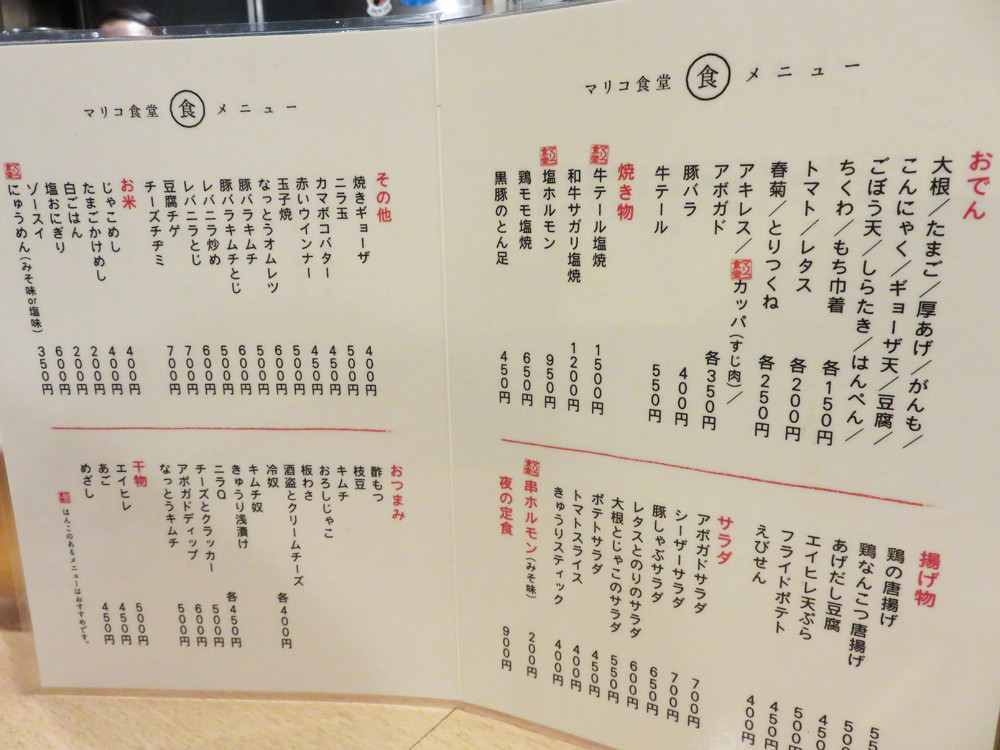 マリコ食堂 食 メニュー
おでん
大根／たまご／厚あげ／がんも／
こんにゃく／ギョーザ天／豆腐／
ごぼう天／しらたき／はんぺん／
ちくわ／もち巾着 各150円
トマト／レタス 各200円
春菊／とりつくね 各250円
アキレス／カッパ(すじ肉)／
アボガド 各350円
豚バラ 400円
牛テール 550円
焼き物
牛テール塩焼 1500円
和牛サガリ塩焼 1200円
塩ホルモン 950円
鶏モモ塩焼 650円
黒豚のとん足 450円
揚げ物
鶏の唐揚げ
鶏なんこつ唐揚げ
あげだし豆腐
エイヒレ天ぷら 500
フライドポテト 450円
えびせん 400円
サラダ
アボガドサラダ 700円
シーザーサラダ 700円
豚しゃぶサラダ 650円
レタスとのりのサラダ 600円
大根とじゃこのサラダ 550円
ポテトサラダ 450円
トマトスライス 400円
きゅうりスティック 400円
串ホルモン(みそ味) 200円
夜の定食 900円
マリコ食堂 食 メニュー
その他
焼きギョーザ 400円
ニラ玉 500円
カマボコバター 450円
赤いウインナー 450円
玉子焼 500円
なっとうオムレツ
豚バラキムチ
豚バラキムチとじ
レバニラ炒め
レバニラとじ
豆腐チゲ 700円
チーズチヂミ 700円
お米
じゃこめし 400円
たまごかけめし 400円
白ごはん 200円
塩おにぎり 200円
ゾースイ 600円
にゅうめん(みそ味or塩味) 350円
おつまみ
酢もつ
枝豆
キムチ
おろしじゃこ
板わさ
酒盗とクリームチーズ
冷奴 各400円
キムチ奴
きゅうり浅漬け 各450円
ニラQ 500円
チーズとクラッカー 600円
アボガドディップ 500円
なっとうキムチ
干物
エイヒレ 500円
あご 450円
めざし 450円
はんこのあるメニューはおすすめです。